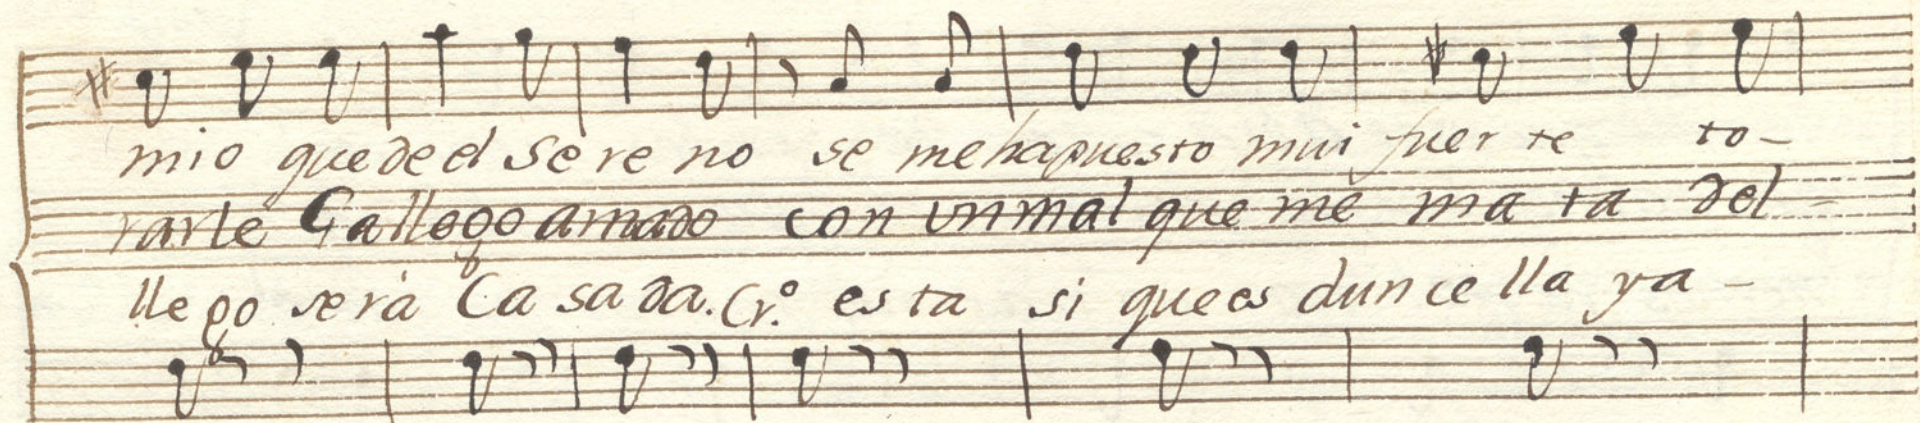 mio que de el Se re no se me ha puesto mui fuer te to-
rarle Gallego amado con un mal que me ma ta del-
lle go será Ca sa da. Cr.º es ta si que es dun ce lla ya-